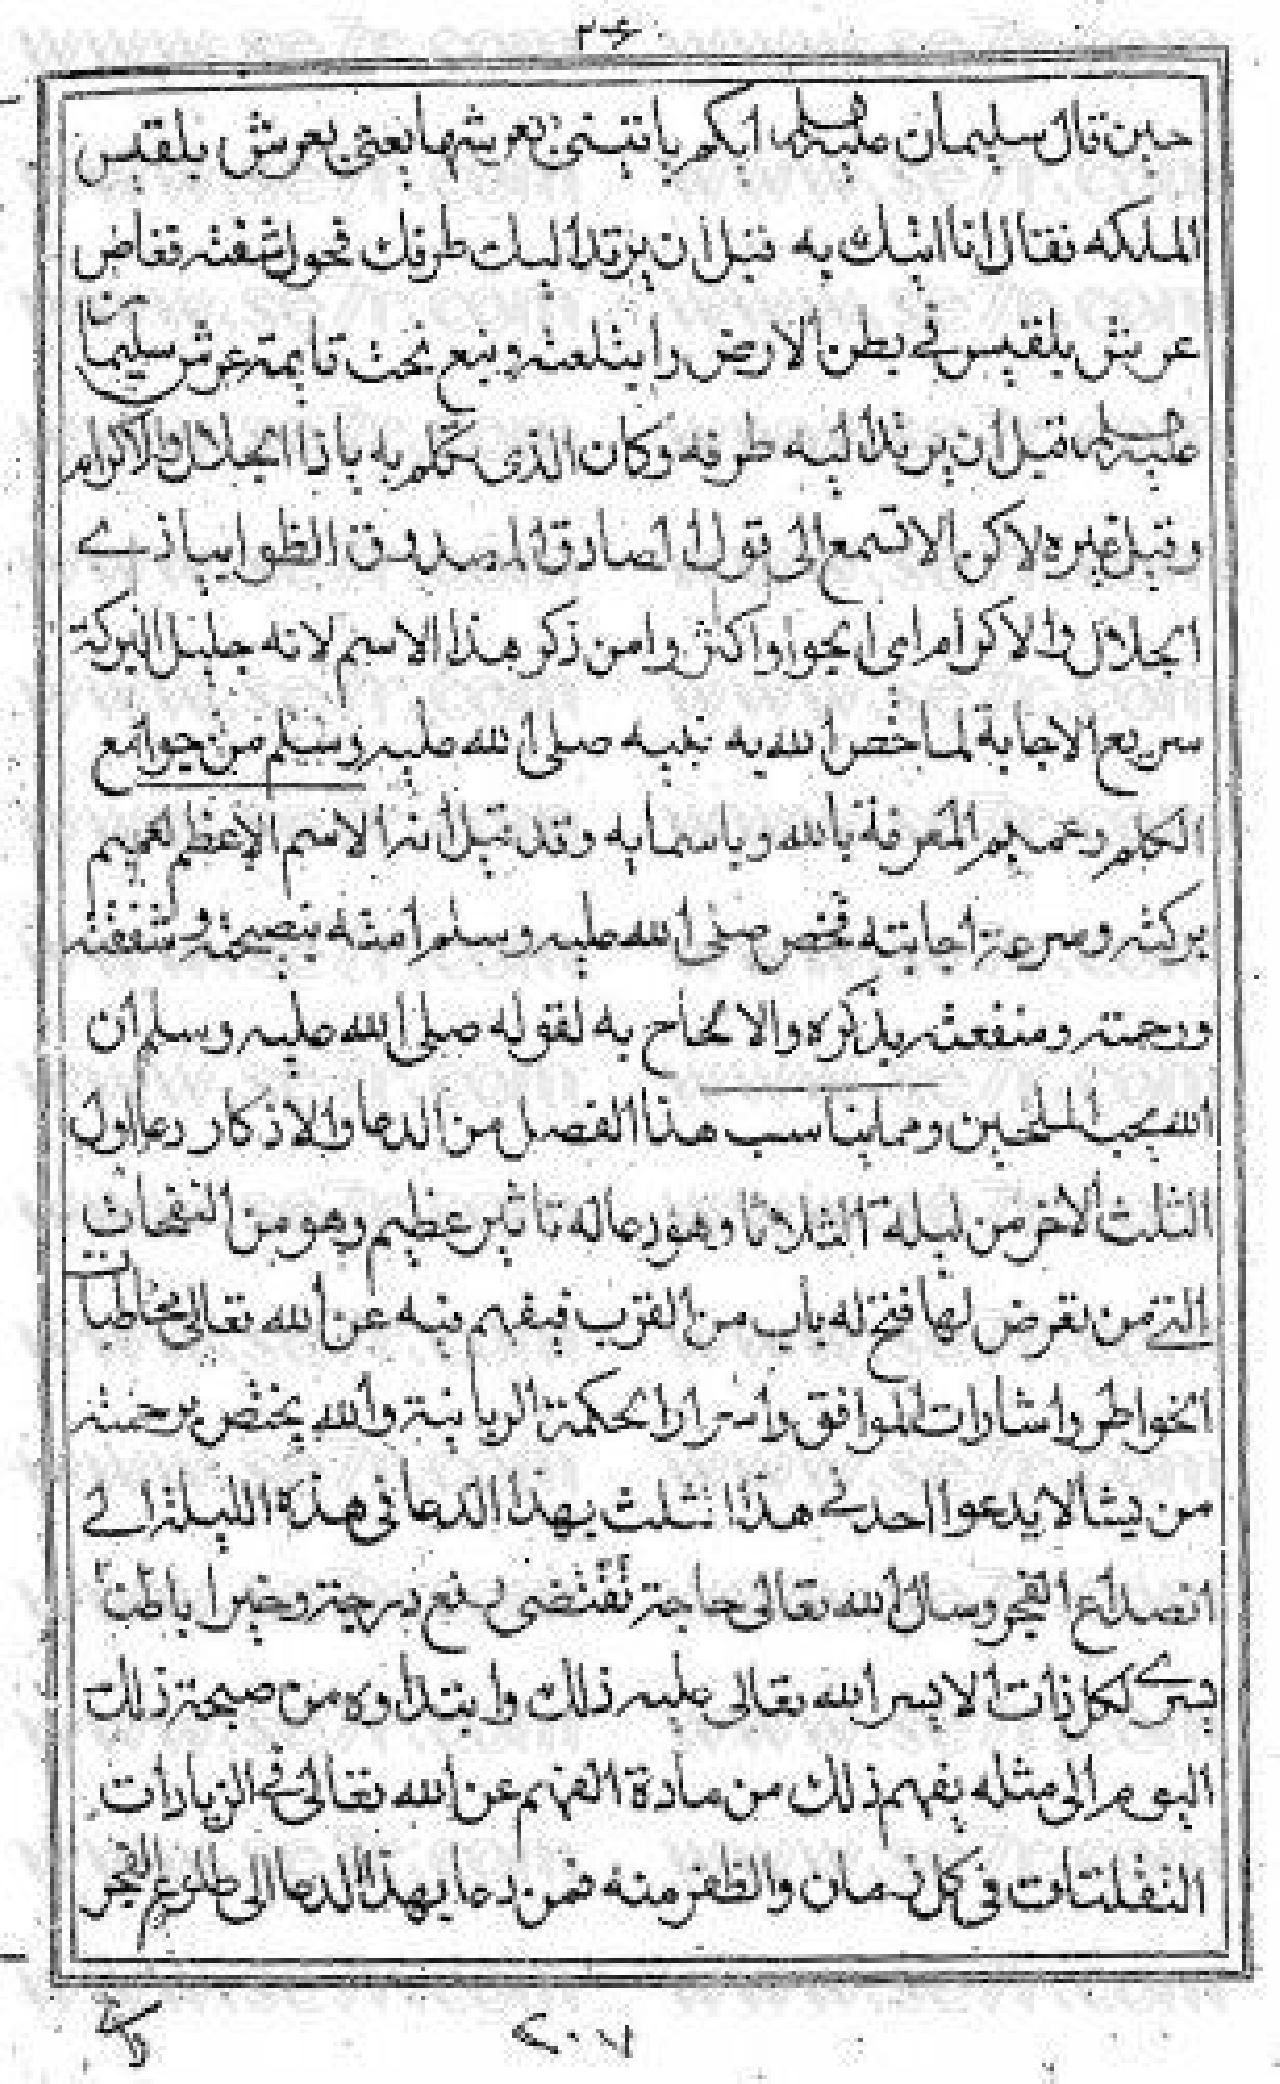 ٢٠٦
حين قال سليمان عليه السلام ايكم ياتيني بعرشها يعني بعرش بلقيس
الملكه فقال انا اتيك به قبل ان يرتد اليك طرفك فحول شفته فغاض
عرش بلقيس في بطن الارض وابتلعته ونبع تحت قايمة عرش سليمان
عليه السلام قبل ان يرتد اليه طرفه وكان الذي تكلم به ياذا الجلال والاكرام
وقيل غيره لاكن الا تسمع الى قول الصادق المصدوق الظوا بيا ذي
الجلال والاكرام اى الحوا واكثروا من ذكر هذا الاسم لانه جليل البركة
سريع الاجابة لما خص الله به نبيه صلى الله عليه وسلم من جوامع
الكلم وعميم المعرفة بالله وباسمايه وقد قيل انه الاسم الاعظم لعميم
بركته وسرعة اجابته فخص صلى الله عليه وسلم امته بنصيحته وشفقته
ورحمته ومنفعته بذكره والالحاح به لقوله صلى الله عليه وسلم ان
الله يحب الملحين ومما يناسب هذا الفصل من الدعا والاذكار دعا اول
الثلث الاخر من ليلة الثلاثا وهو دعا له تاثير عظيم وهو من النفحات
التي من تعرض لها فتح له باب من القرب فيفهم فيه عن الله تعالى مخاطبات
الخواطر واشارات الموافق واسرار الحكمة الربانية والله يختص برحمته
من يشا لا يدعوا احد في هذا الثلث بهذا الدعا في هذه الليلة الى
انصداع الفجر وسال الله تعالى حاجة تقتضى رفع درجة وخيرا باطنا
يسرى لكل ذات الا يسر الله تعالى عليه ذلك وابتداوه من صبيحة ذلك
اليوم الى مثله يفهم ذلك من مادة الفهم عن الله تعالى في الزيارات
في كل زمان والظفر منه فمن دعا بهذا الدعا الى طلوع الفجر
٢٠٧